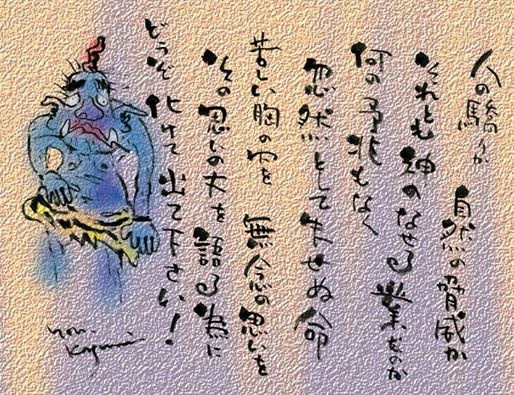 人の驕りか
自然の脅威か
それとも神のなせる業なのか
何の予兆もなく
忽然として失せぬ命
苦しい胸の内を 無念の思いを
その思いの丈を 語る為に
どうぞ 化けて出て下さい!